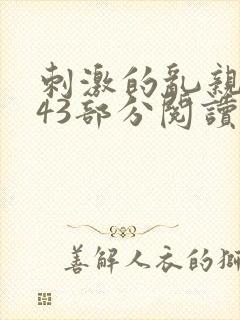 刺激的乱親
43部分閱讀
善解人衣的獅